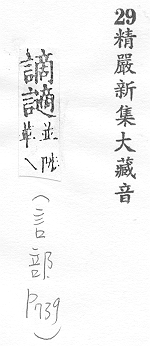 29精嚴新集大藏音
謫讁並陟
革入
(言部
P739)